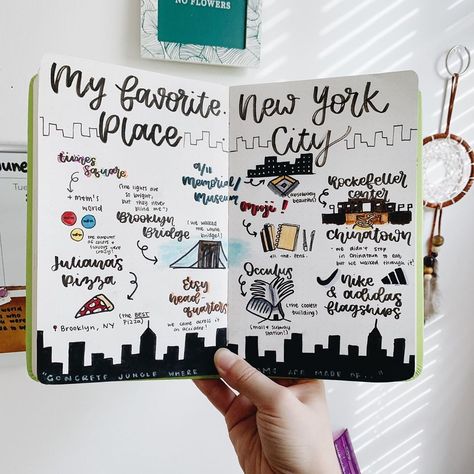 NO FLOWERS
My favorite Place
times square
+ m&m's world
(the lights are so bright, but they never blind me")
(the amount of colors +
9/11 Memorial + Museum
Brooklyn Bridge
(we walked the whole bridge!)
Juliana's Pizza
(the BEST pizza)
Brooklyn, NY
Etsy headquarters
we came across it on accident!
New York City
(absolutely beautiful)
Rockefeller Center
Muji!
all the pens
Chinatown
we didn't stop in chinatown to eat, but we walked through it
Occulus
(the coolest building)
(mall & subway station)
Nike & adidas flagships
"CONCRETE JUNGLE WHERE
ARE MADE OF..."
une
Tue